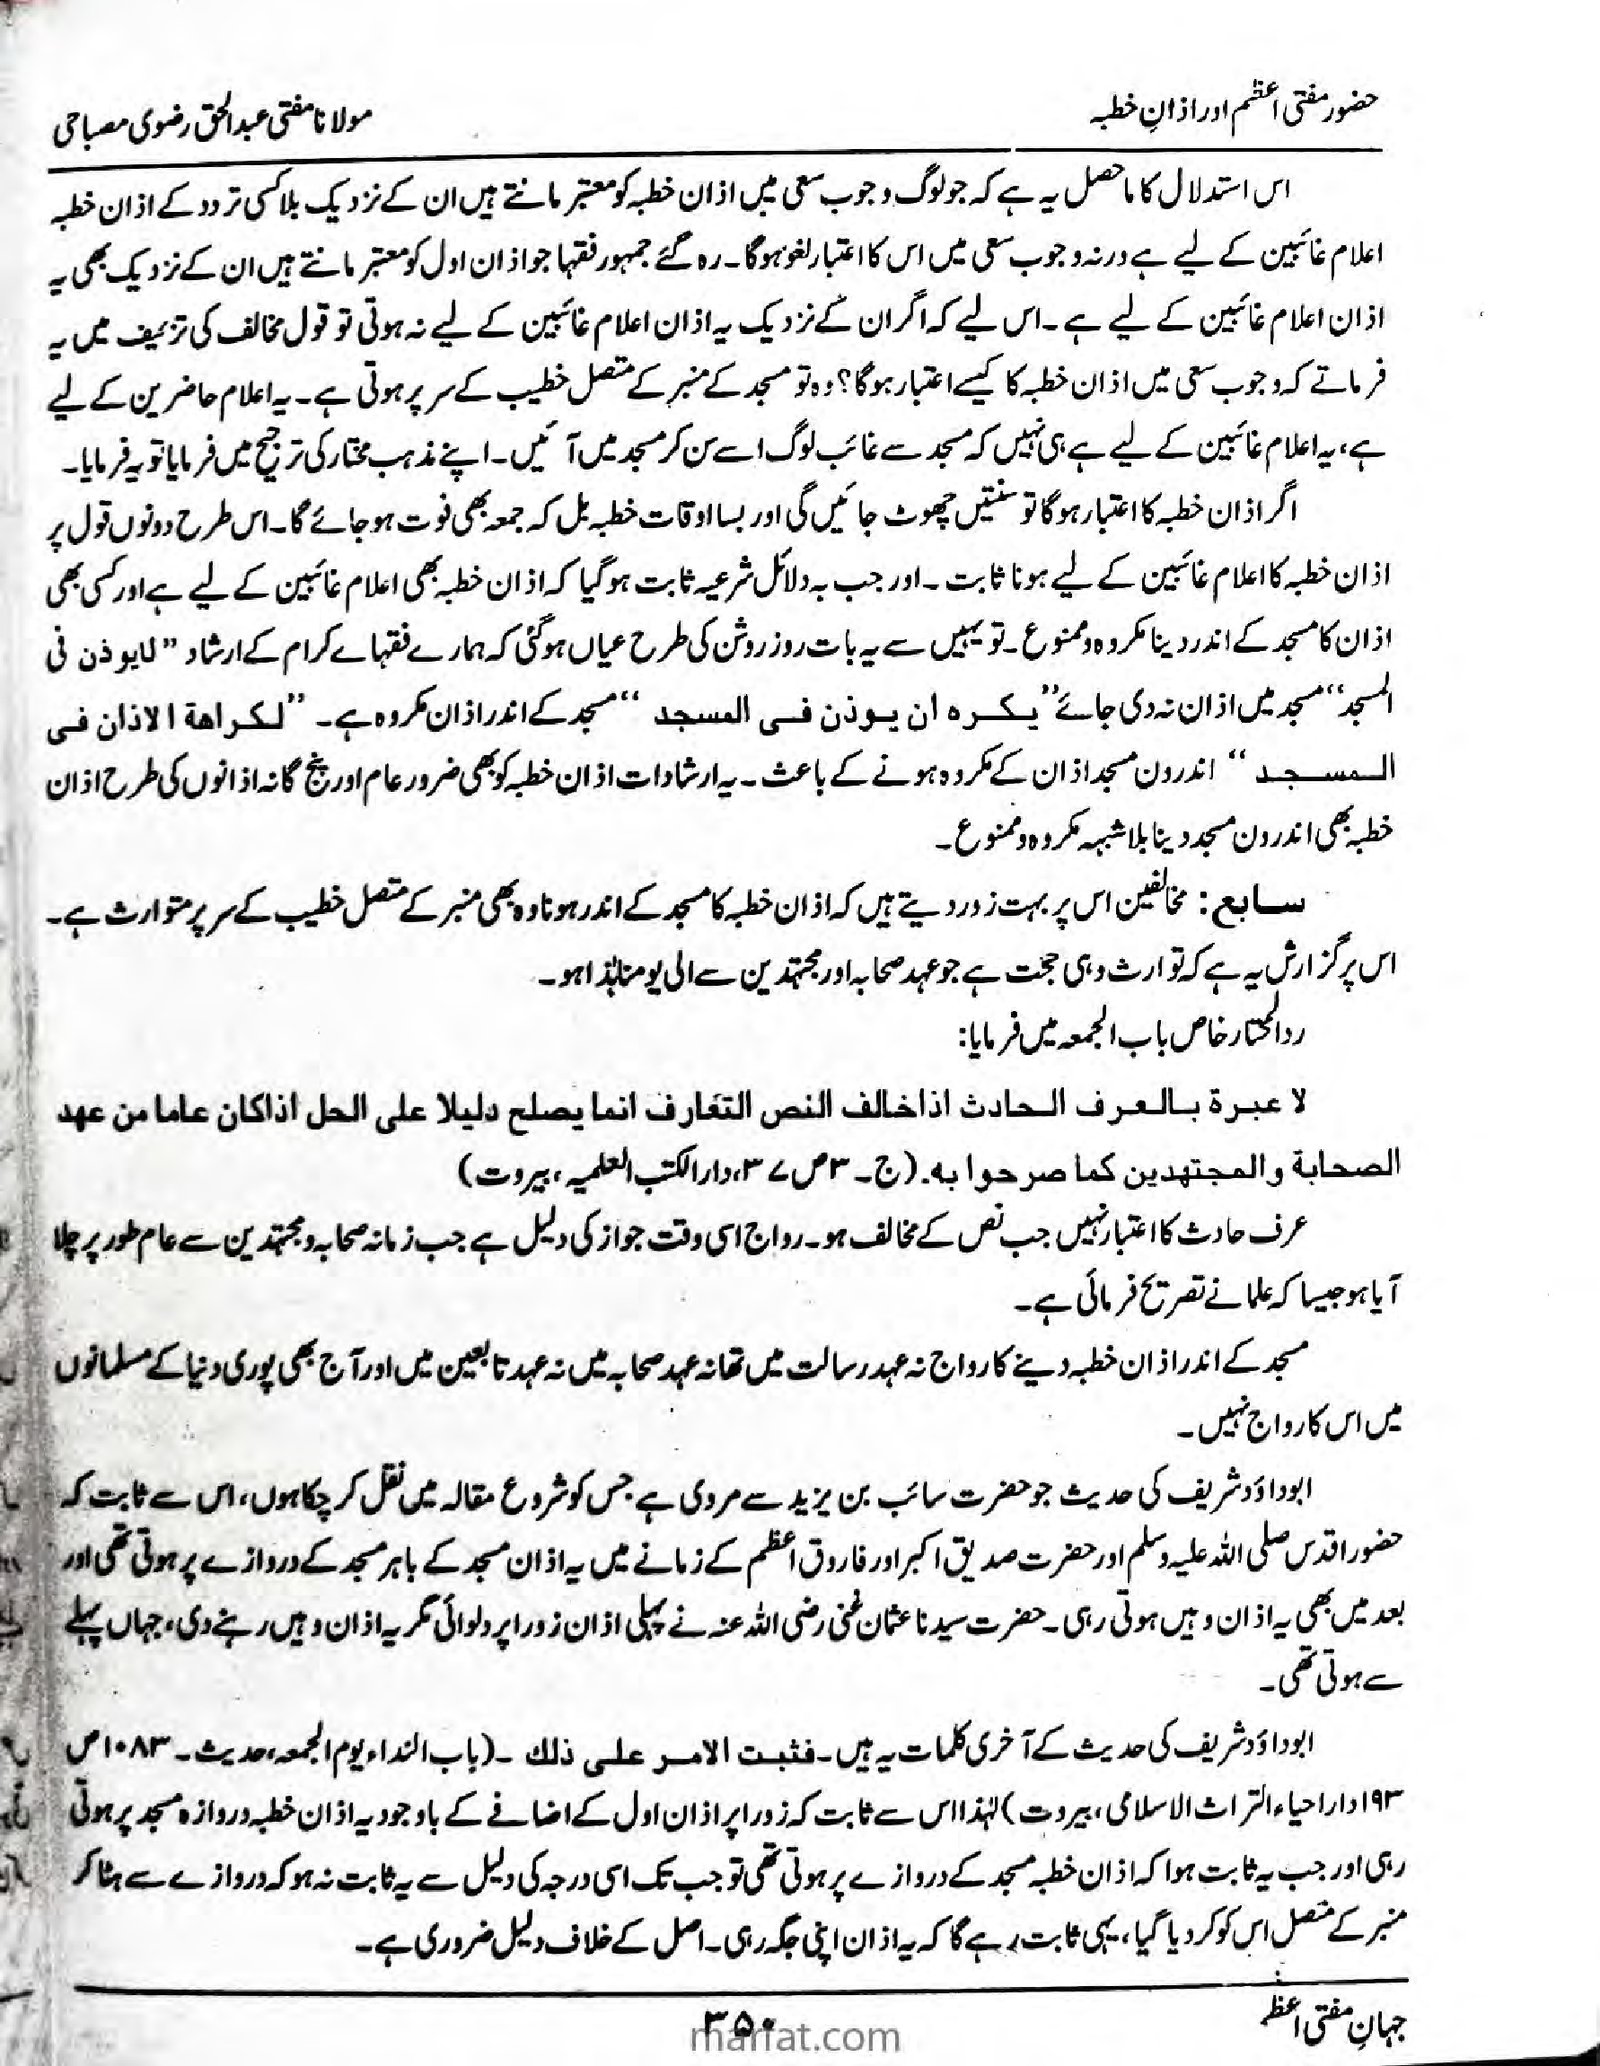 حضور مفتی اعظم اور اذانِ خطبہ
مولانا مفتی عبد الحق رضوی مصباحی
اس استدلال کا ماحصل یہ ہے کہ جو لوگ وجوب سعی میں اذان خطبہ کو معتبر مانتے ہیں ان کے نزدیک بلا کسی تردد کے اذان خطبہ
اعلام غائبین کے لیے ہے ورنہ وجوب سعی میں اس کا اعتبار لغو ہوگا۔ رہ گئے جمہور فقہا جو اذان اول کو معتبر مانتے ہیں ان کے نزدیک بھی یہ
اذان اعلام غائبین کے لیے ہے۔ اس لیے کہ اگر ان کے نزدیک یہ اذان اعلام غائبین کے لیے نہ ہوتی تو قول مخالف کی تزئیف میں یہ
فرماتے کہ وجوب سعی میں اذان خطبہ کا کیسے اعتبار ہوگا؟ وہ تو مسجد کے منبر کے متصل خطیب کے سر پر ہوتی ہے۔ یہ اعلام حاضرین کے لیے
ہے، یہ اعلام غائبین کے لیے ہے ہی نہیں کہ مسجد سے غائب لوگ اسے سن کر مسجد میں آئیں۔ اپنے مذہب مختار کی ترجیح میں فرمایا تو یہ فرمایا۔
اگر اذان خطبہ کا اعتبار ہوگا تو سنتیں چھوٹ جائیں گی اور بسا اوقات خطبہ بل کہ جمعہ بھی فوت ہو جائے گا۔ اس طرح دونوں قول پر
اذان خطبہ کا اعلام غائبین کے لیے ہونا ثابت۔ اور جب بہ دلائل شرعیہ ثابت ہو گیا کہ اذان خطبہ بھی اعلام غائبین کے لیے ہے اور کسی بھی
اذان کا مسجد کے اندر دینا مکروہ و ممنوع۔ تو یہیں سے یہ بات روز روشن کی طرح عیاں ہو گئی کہ ہمارے فقہاے کرام کے ارشاد ”لایوذن فی
المسجد“ مسجد میں اذان نہ دی جائے ”یکره ان یوذن فی المسجد“ مسجد کے اندر اذان مکروہ ہے۔ ”لکراهة الاذان فی
المسجد“ اندرون مسجد اذان کے مکروہ ہونے کے باعث۔ یہ ارشادات اذان خطبہ کو بھی ضرور عام اور پنج گانہ اذانوں کی طرح اذان
خطبہ بھی اندرون مسجد دینا بلاشبہہ مکروہ و ممنوع۔
سابع: مخالفین اس پر بہت زور دیتے ہیں کہ اذان خطبہ کا مسجد کے اندر ہونا وہ بھی منبر کے متصل خطیب کے سر پر متوارث ہے۔
اس پر گزارش یہ ہے کہ توارث وہی حجت ہے جو عہد صحابہ اور مجتہدین سے الی یومنا ہٰذا ہو۔
ردالمحتار خاص باب الجمعہ میں فرمایا:
لا عبرة بالعرف الحادث اذا خالف النص التعارف انما یصلح دلیلا علی الحل اذا کان عاما من عهد
الصحابة والمجتهدین کما صرحوا به. (ج۔ ۳ ص ۳۷، دارالکتب العلمیہ، بیروت)
عرف حادث کا اعتبار نہیں جب نص کے مخالف ہو۔ رواج اسی وقت جواز کی دلیل ہے جب زمانہ صحابہ و مجتہدین سے عام طور پر چلا
آیا ہو جیسا کہ علما نے تصریح فرمائی ہے۔
مسجد کے اندر اذان خطبہ دینے کا رواج نہ عہد رسالت میں تھا نہ عہد صحابہ میں نہ عہد تابعین میں اور آج بھی پوری دنیا کے مسلمانوں
میں اس کا رواج نہیں۔
ابوداؤد شریف کی حدیث جو حضرت سائب بن یزید سے مروی ہے جس کو شروع مقالہ میں نقل کر چکا ہوں، اس سے ثابت کہ
حضور اقدس صلی اللہ علیہ وسلم اور حضرت صدیق اکبر اور فاروق اعظم کے زمانے میں یہ اذان مسجد کے باہر مسجد کے دروازے پر ہوتی تھی اور
بعد میں بھی یہ اذان وہیں ہوتی رہی۔ حضرت سیدنا عثمان غنی رضی اللہ عنہ نے پہلی اذان زورا پر دلوائی مگر یہ اذان وہیں رہنے دی، جہاں پہلے
سے ہوتی تھی۔
ابوداؤد شریف کی حدیث کے آخری کلمات یہ ہیں۔ فثبت الامر علی ذلك ۔ (باب النداء یوم الجمعہ، حدیث۔ ۱۰۸۳ ص
۱۹۳ دار احیاء التراث الاسلامی، بیروت) لہٰذا اس سے ثابت کہ زورا پر اذان اول کے اضافے کے باوجود یہ اذان خطبہ دروازہ مسجد پر ہوتی
رہی اور جب یہ ثابت ہوا کہ اذان خطبہ مسجد کے دروازے پر ہوتی تھی تو جب تک اسی درجہ کی دلیل سے یہ ثابت نہ ہو کہ دروازے سے ہٹا کر
منبر کے متصل اس کو کر دیا گیا، یہی ثابت رہے گا کہ یہ اذان اپنی جگہ رہی۔ اصل کے خلاف دلیل ضروری ہے۔
جہانِ مفتی اعظم
۳۵۰
marfat.com